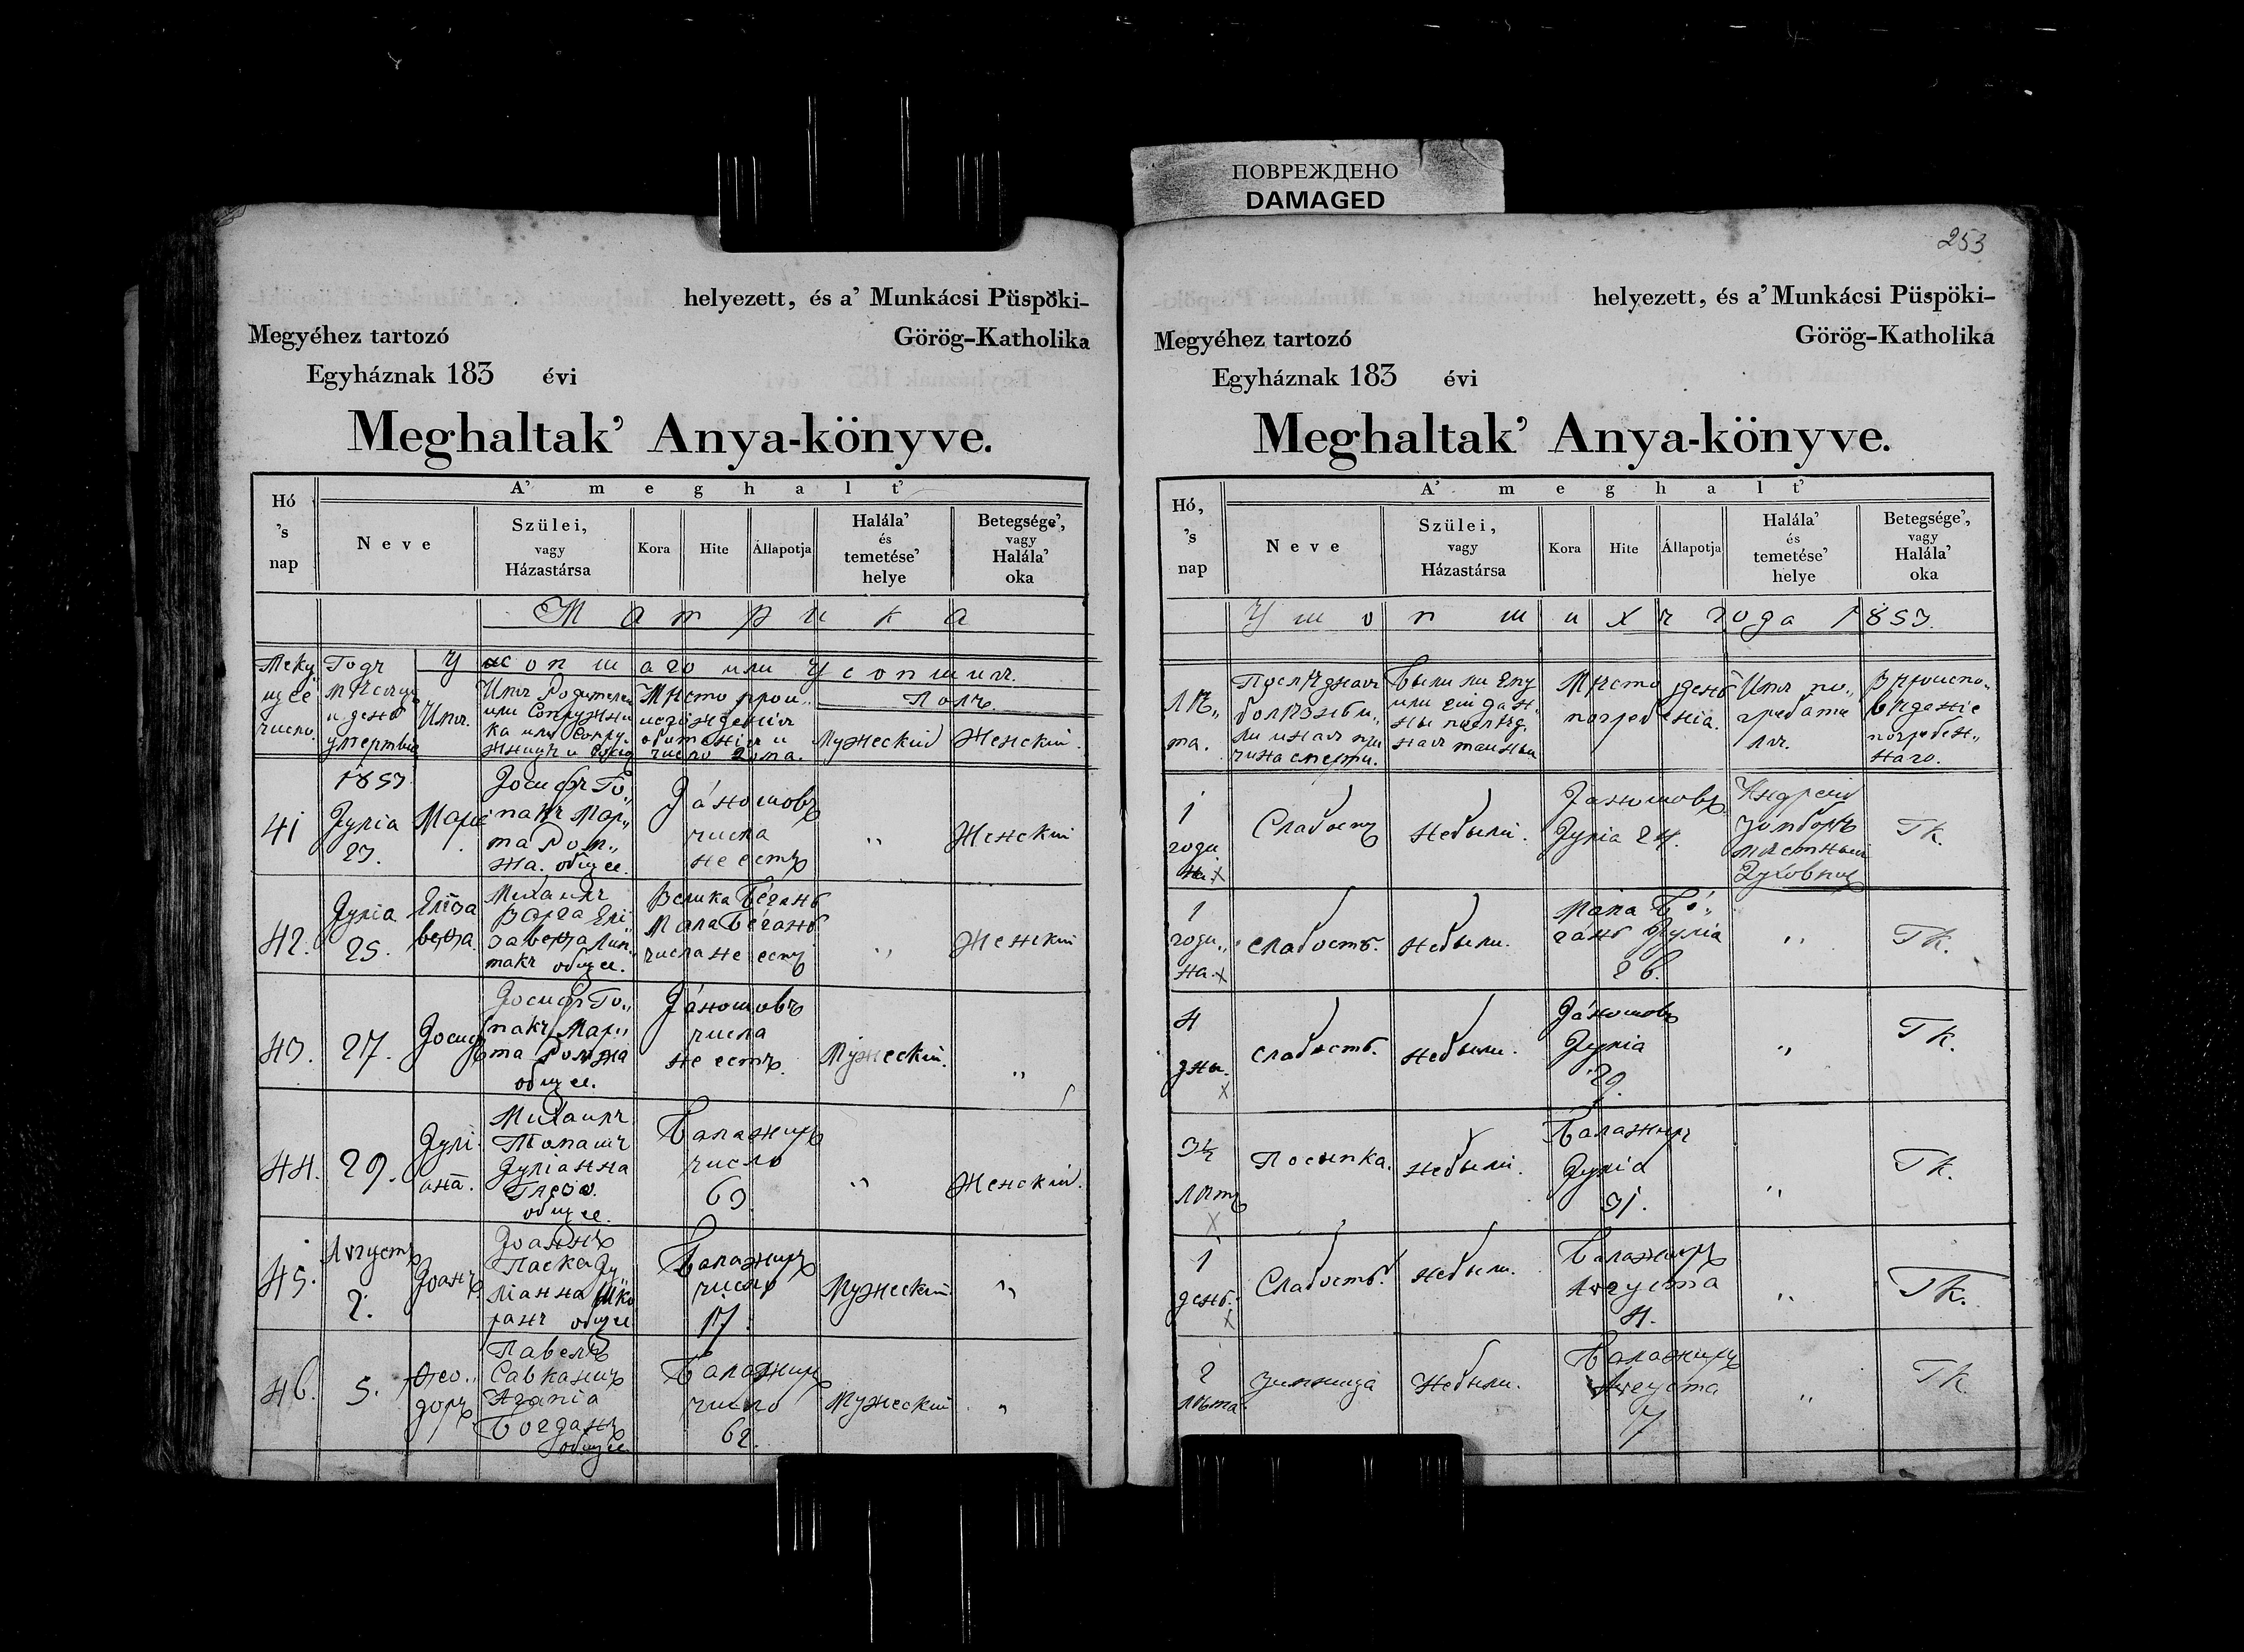 ПОВРЕЖДЕНО
DAMAGED
helyezett, és a' Munkácsi Püspöki-
Megyéhez tartozó Görög-Katholika
Egyháznak 183 évi
Meghaltak' Anya-könyve.
Hó 's nap
A' meghalt'
Neve
Szülei, vagy Házastársa
Kora
Hite
Állapotja
Halála' és temetése' helye
Betegsége', vagy Halála' oka
Матрика
Текущее число.
Годъ мѣсяцъ и день умертвія
Усопшаго или Усопшия.
Имя.
Имя Родителей или Сопружника или Сопружницы и
Мѣсто происхожденія обитанія и число дома.
Полъ.
Мужескій
Женскій.
41
1853
Јулія
23.
Марія
Јосифъ
та
общее.
Јаношовъ
числа
не естъ
"
Женскій
42.
Јулія
25.
Елізавета.
Михаилъ
Варга Елізавета
общее.
Велика Бéгань
Мала Бéгань
числа не естъ
"
Женскій
43.
27.
Јосифъ
Јосифъ
общее.
Јаношовъ
числа
не естъ.
Мужескій.
"
44.
29.
Јуліана.
Михаилъ
Јуліанна
общее.
Балажиръ
число
69
"
Женскій.
45.
Августъ
2.
Јоанъ
Јоаннъ
Паска Јуліанна
общее
Балажиръ
число
17.
Мужескій
"
46.
5.
Ѳеодоръ
Павелъ
Агапіа
Богданъ
общее
Балажиръ
число
62.
Мужескій
"
253
helyezett, és a' Munkácsi Püspöki-
Megyéhez tartozó Görög-Katholika
Egyháznak 183 évi
Meghaltak' Anya-könyve.
Hó, 's nap
A' meghalt'
Neve
Szülei, vagy Házastársa
Kora
Hite
Állapotja
Halála' és temetése' helye
Betegsége', vagy Halála' oka
Усопшихъ года 1853.
Лѣта.
Послѣдная болѣзнь или иная причина смерти.
Были ли ему или ей данны послѣдная таины
Мѣсто день погребенія.
Имя погребателя.
Вѣроисповѣданіе погребеннаго.
1
година.x
Слабость
Небыли.
Јаношовъ
Јулія 24.
Андрей
мѣстный
Духовникъ
ГК.
1
година.x
слабость.
небыли.
Мала Бéгань Јулія
26.
"
ГК.
4
дны.
x
слабость.
небыли.
Јаношовъ
Јулія
29.
"
ГК.
3½
лѣтъ
x
Посыпка.
небыли.
Балажиръ
Јулія
31.
"
ГК.
1
день.
x
Слабость.
небыли.
Балажиръ
Августа
4.
"
ГК.
2
лѣта
зимница
Небыли.
Балажиръ
Августа
7
"
ГК